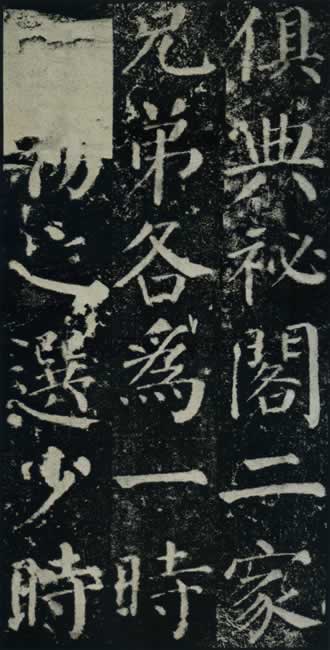 俱典祕閣二家
兄弟各爲一時
初之選少時